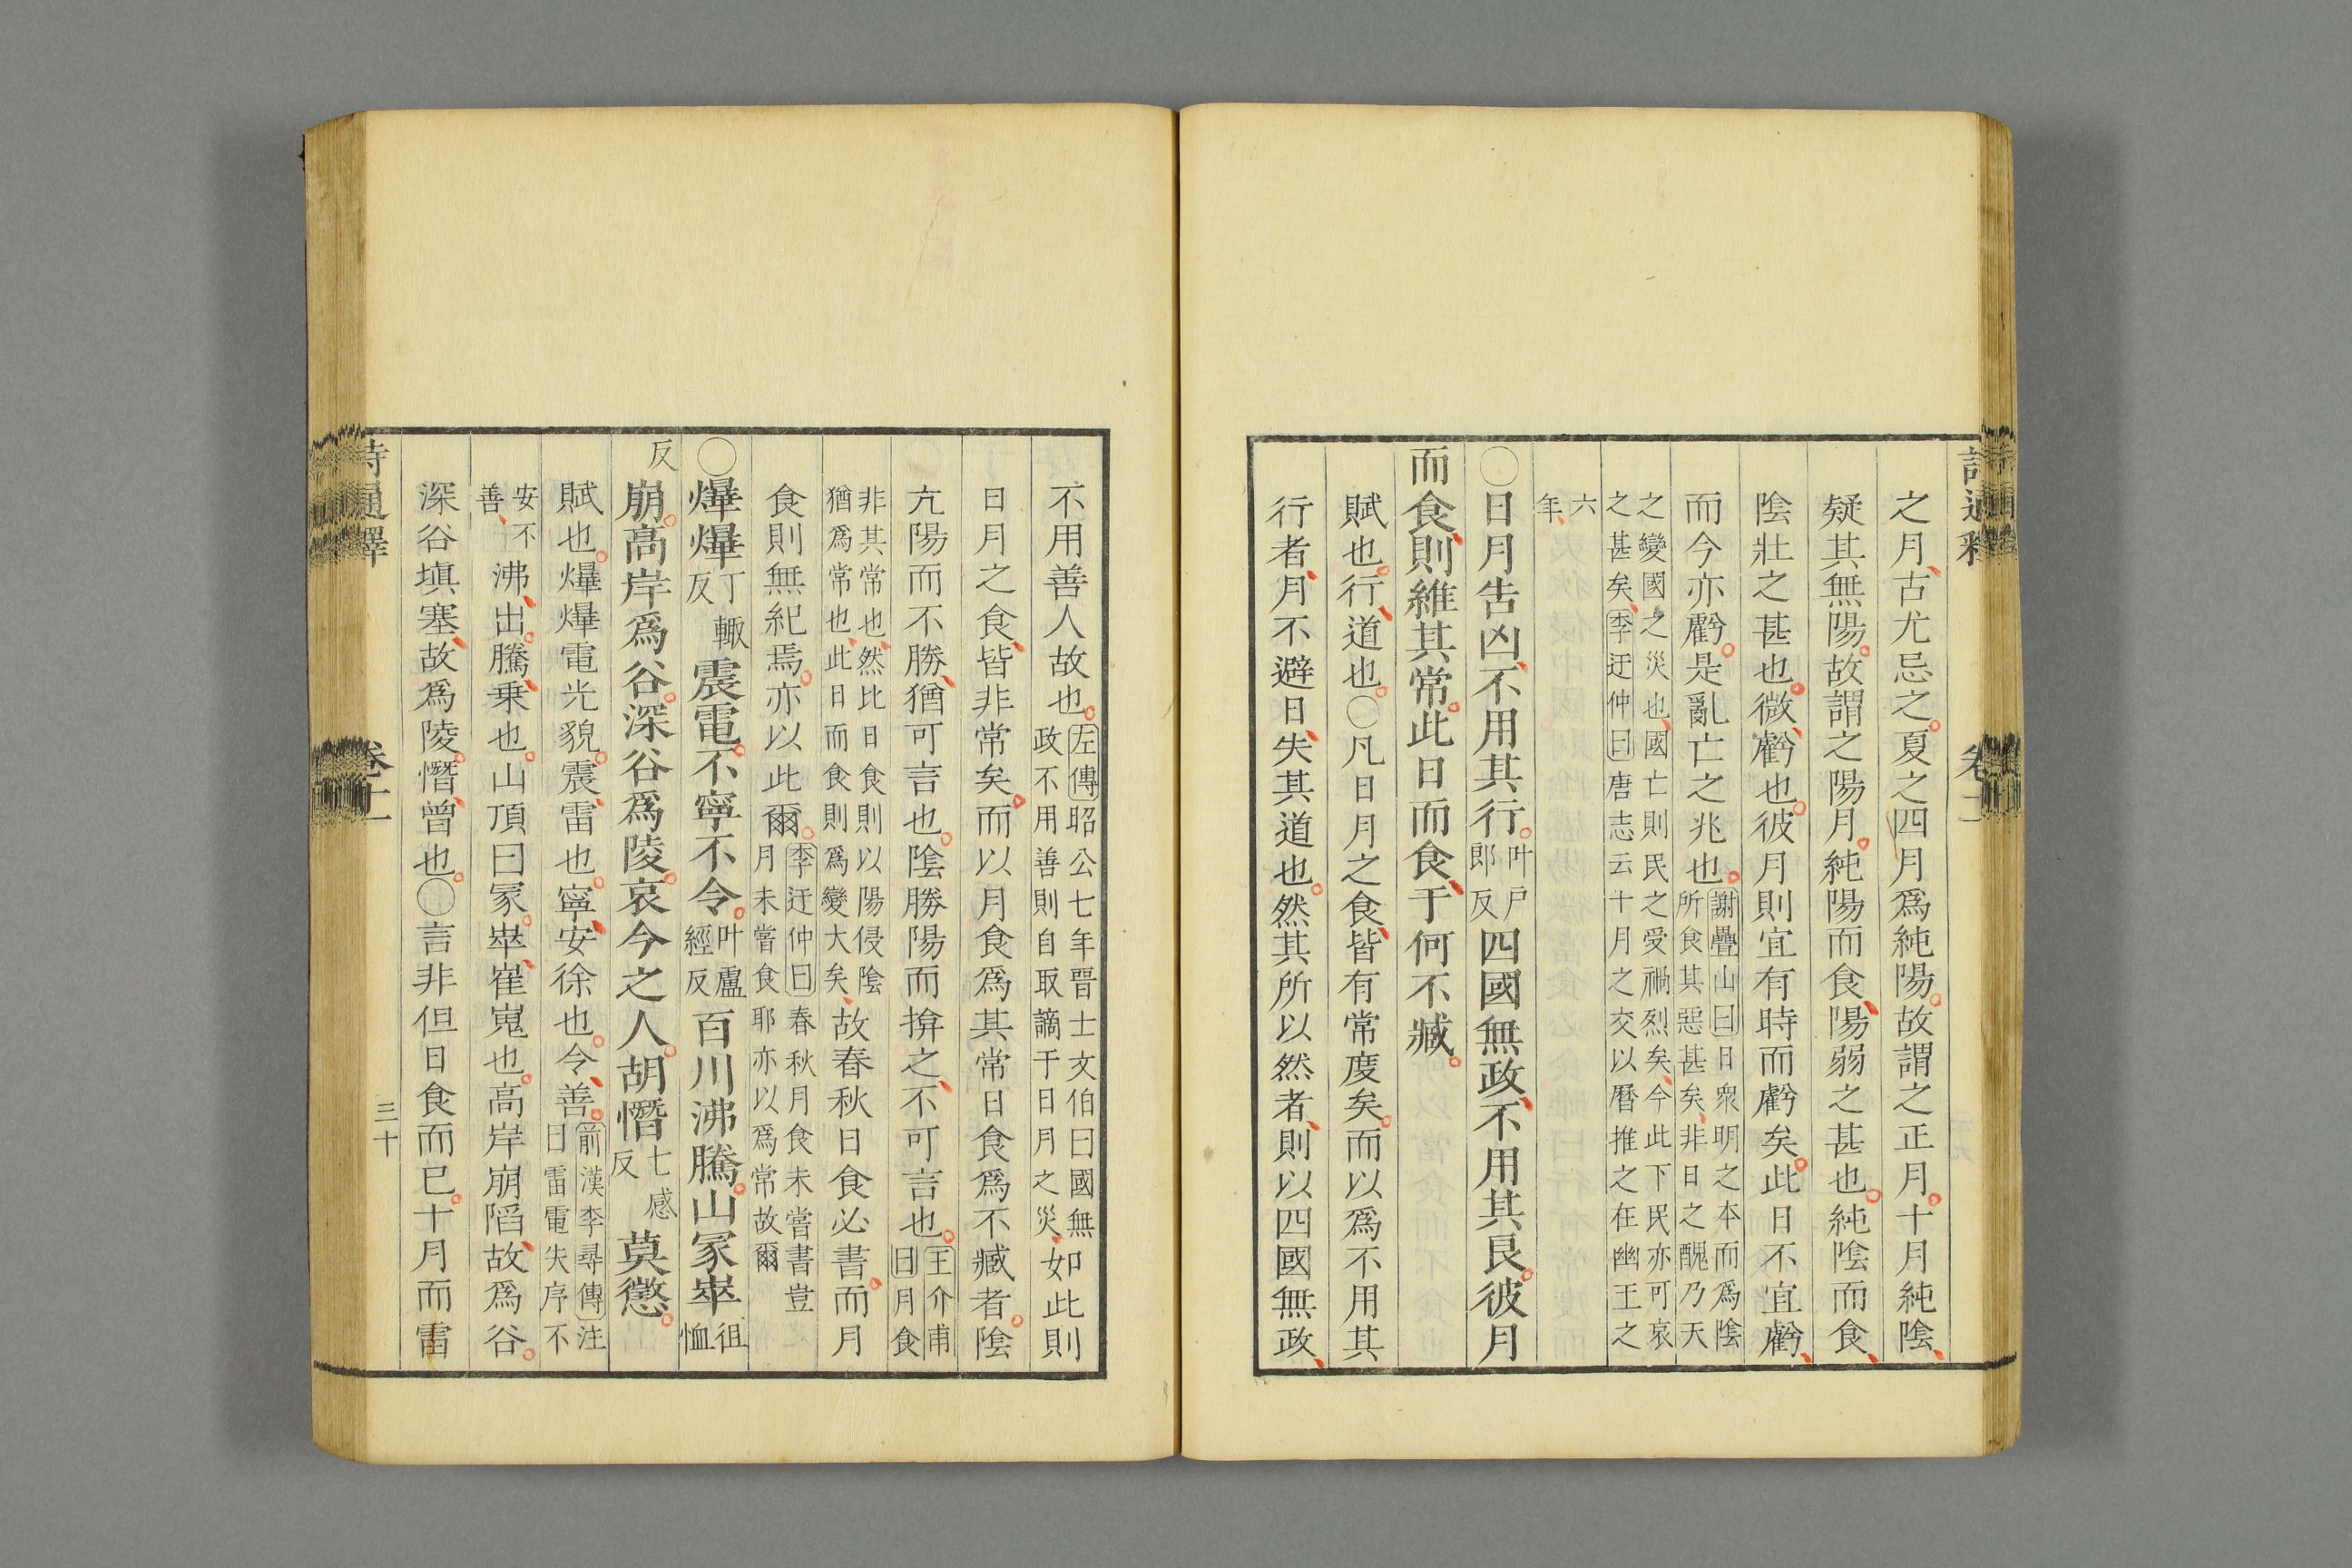 之月古尤忌之夏之四月爲純陽故謂之正月十月純陰
疑其無陽故謂之陽月純陽而食陽弱之甚也純陰而食
陰壯之甚也微虧也彼月則宜有時而虧矣此日不宜虧
而今亦虧是亂亡之兆也謝疊山曰日衆明之本而爲陰所食其惡甚矣非日之醜乃天
之變國之災也國亡則民之受禍烈矣今此下民亦可哀之甚矣李迂仲曰唐志云十月之交以曆推之在幽王之
六年
○日月告凶不用其行叶戶郎反四國無政不用其良彼月
而食則維其常此日而食于何不臧
賦也行道也○凡日月之食皆有常度矣而以爲不用其
行者月不避日失其道也然其所以然者則以四國無政
不用善人故也左傳昭公七年晉士文伯曰國無政不用善則自取謫于日月之災如此則
日月之食皆非常矣而以月食爲其常日食爲不臧者陰
亢陽而不勝猶可言也陰勝陽而揜之不可言也王介甫曰月食
非其常也然比日食則猶爲常也此日而食則以陽侵陰爲變大矣故春秋日食必書而月
食則無紀焉亦以此爾李迂仲曰春秋月食未嘗書豈月未嘗食耶亦以爲常故爾
○爗爗丁輒反震電不寧不令叶盧經反百川沸騰山冢崒徂恤
反崩高岸爲谷深谷爲陵哀今之人胡憯七感反莫懲
賦也爗爗電光貌震雷也寧安徐也令善前漢李尋傳注曰雷電失序不
安不善沸出騰乗也山頂曰冢崒崔嵬也高岸崩陷故爲谷
深谷塡塞故爲陵憯曾也○言非但日食而已十月而雷
三十